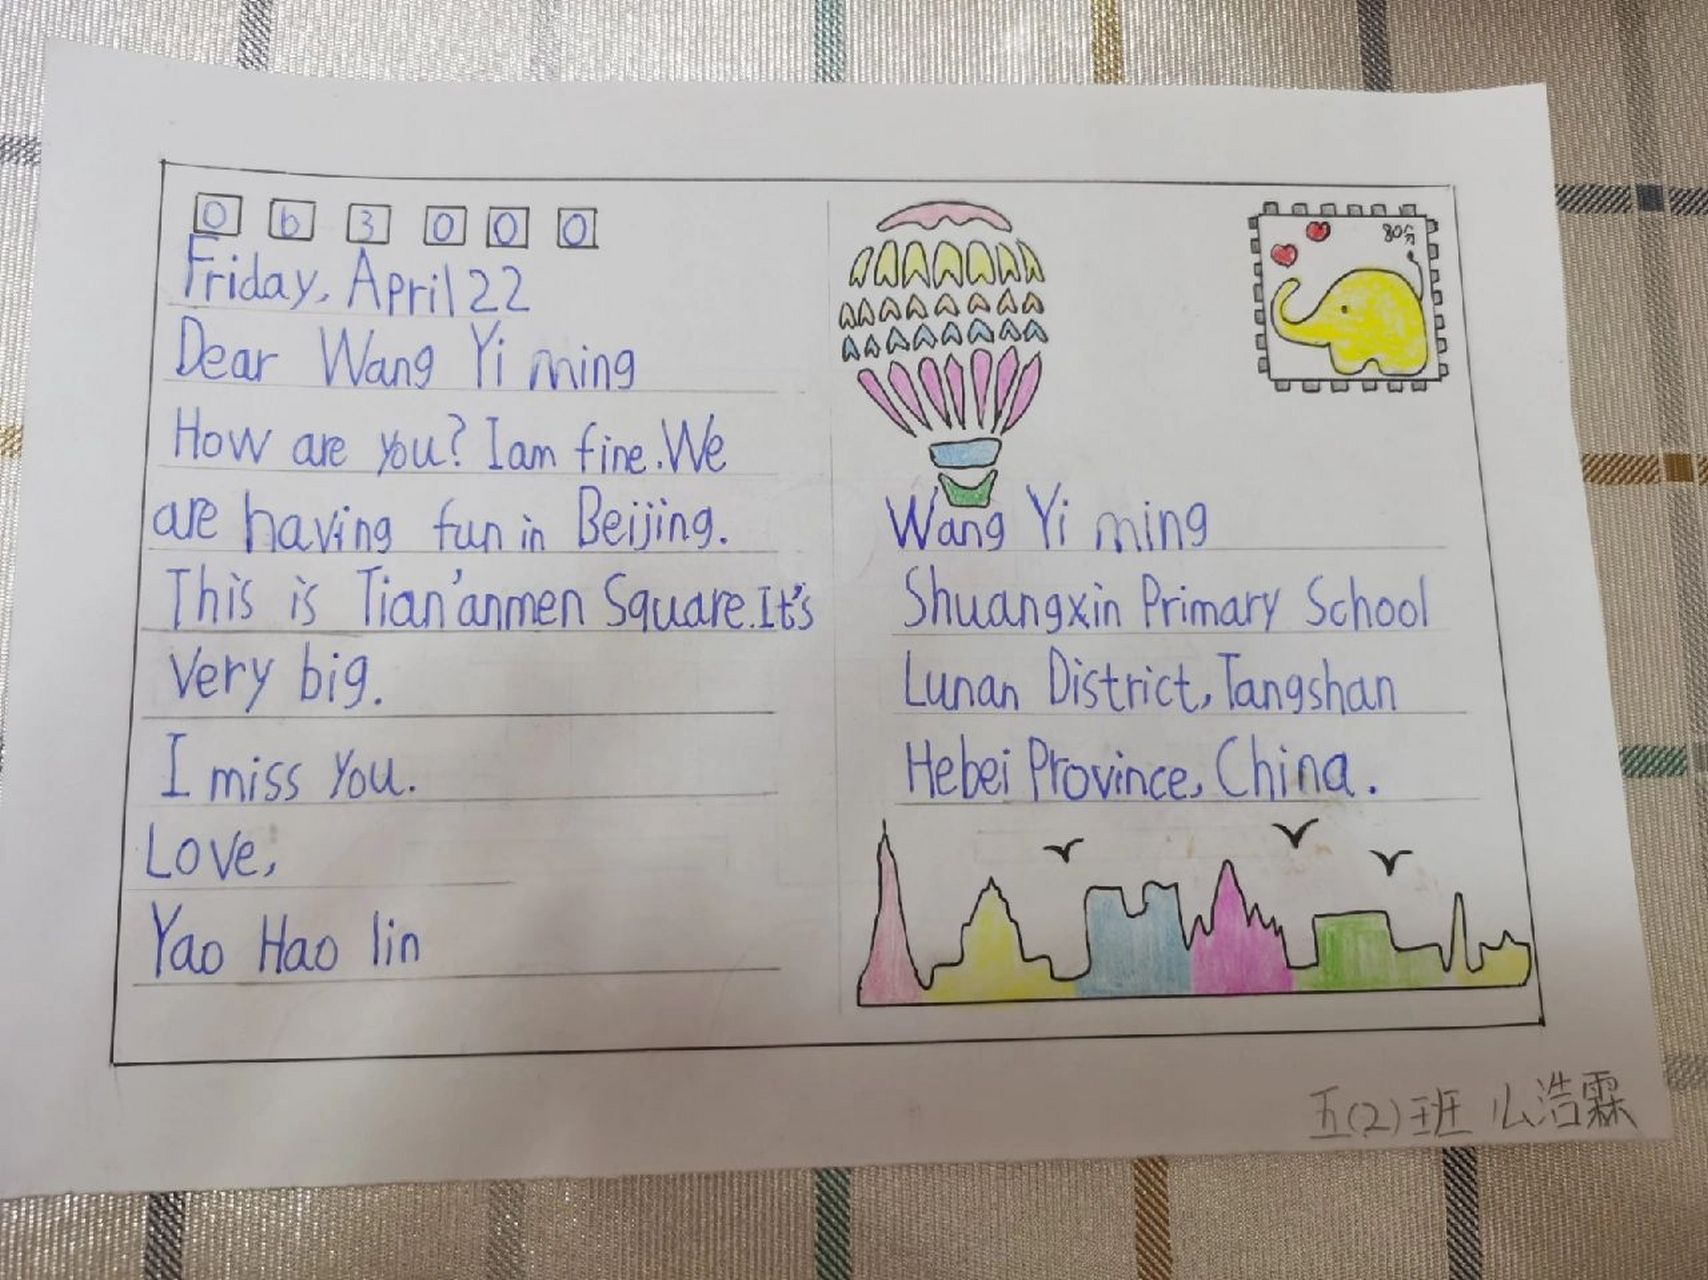 0 6 3 0 0 0
Friday, April 22
Dear Wang Yi ming
How are you? I am fine. We
are having fun in Beijing.
This is Tian'anmen Square. It's
very big.
I miss you.
Love,
Yao Hao lin
80分
Wang Yi ming
Shuangxin Primary School
Lunan District, Tangshan
Hebei Province, China.
五(2)班 么浩霖